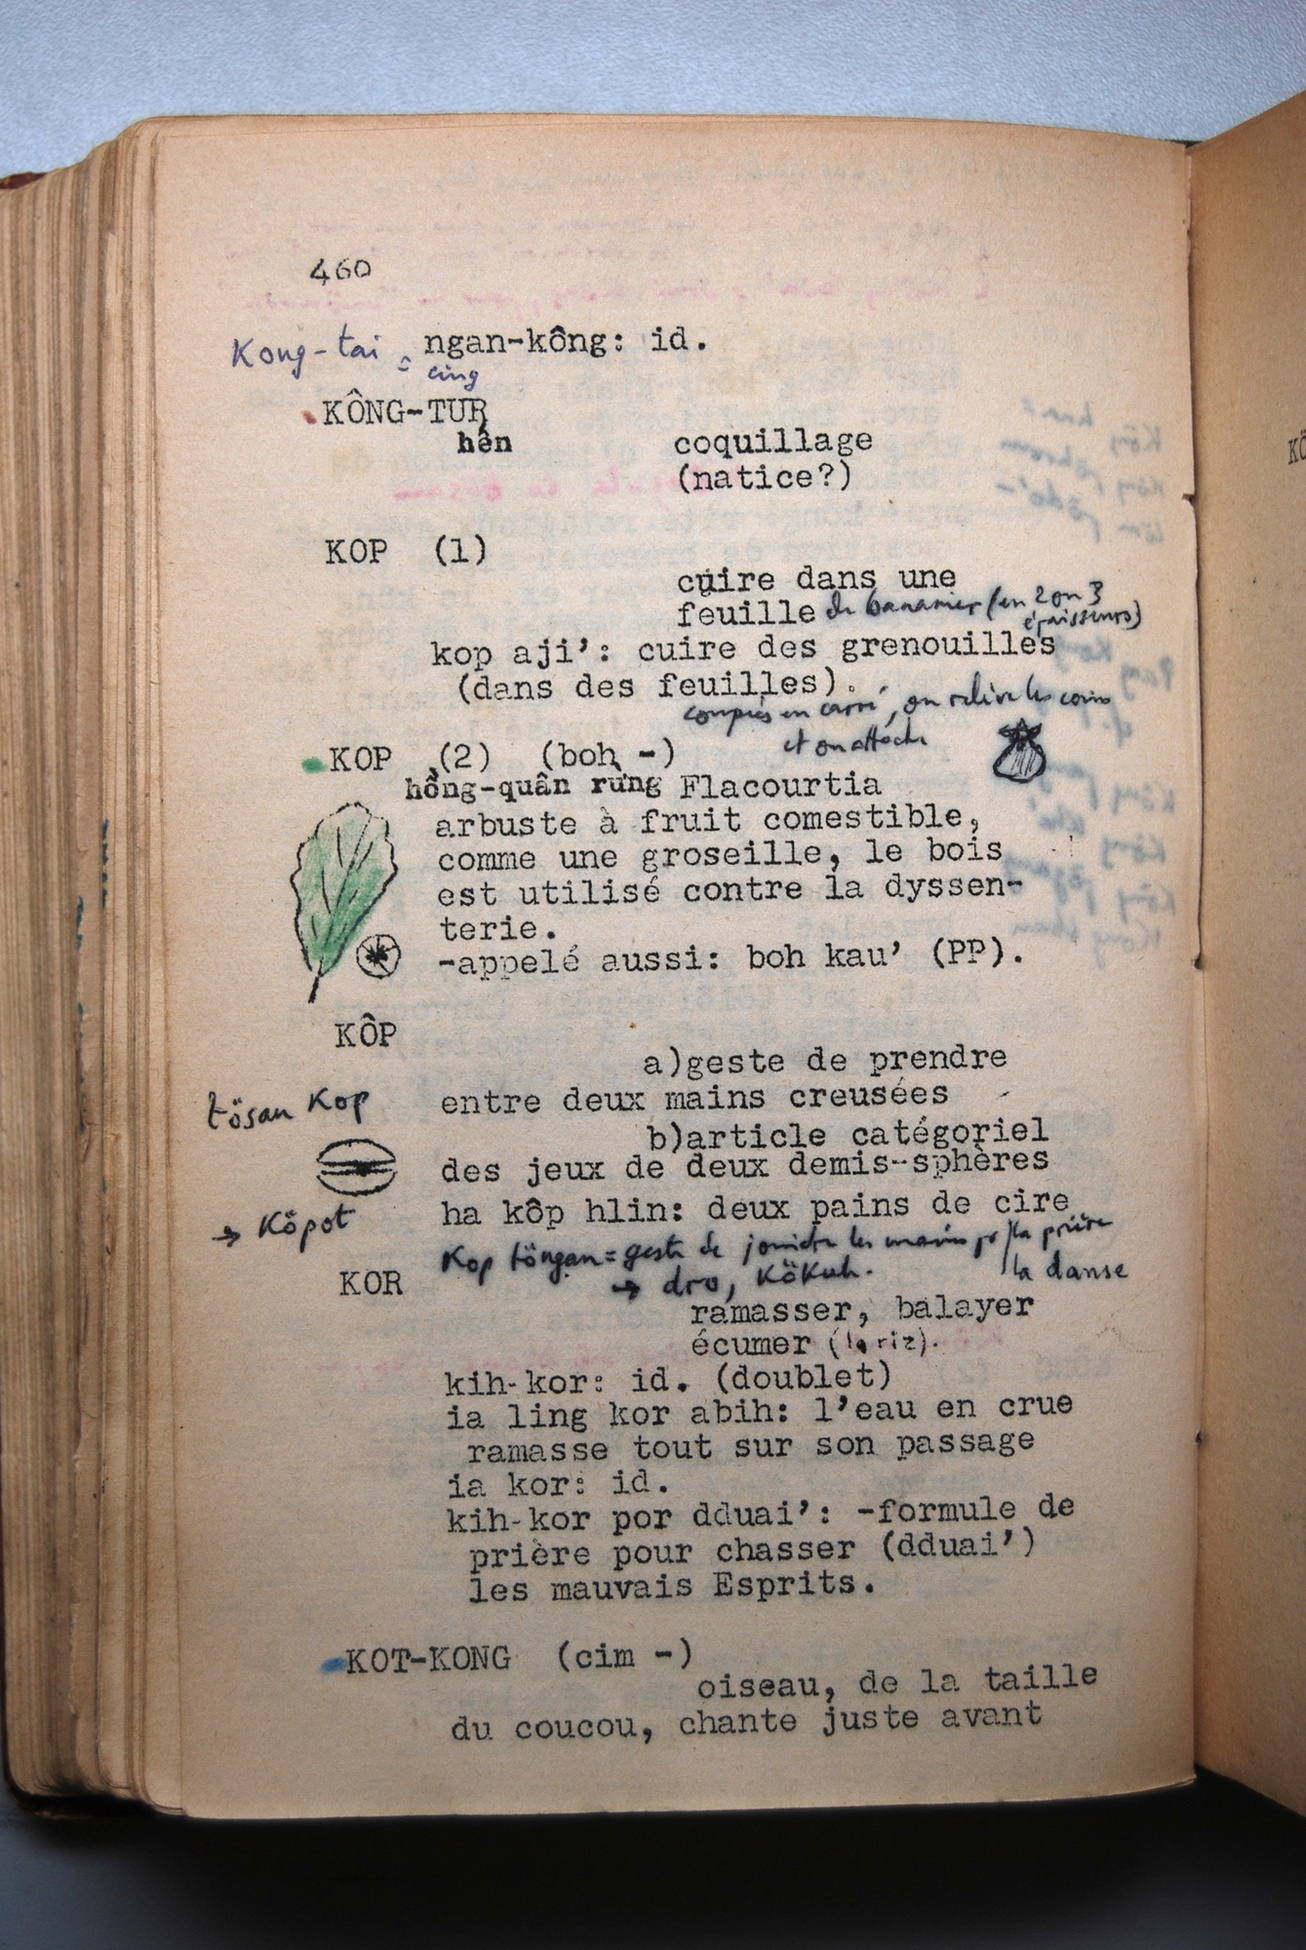 460
Kong-tai ngan-kông: id.
cing
KÔNG-TUR
hến coquillage
(natice?)
KOP (1)
cuire dans une
feuille de bananier (en 2 ou 3
épaisseurs)
kop aji’: cuire des grenouilles
(dans des feuilles).
coupées en carré, on relève les coins
et on attache
KOP (2) (boh -)
hồng-quân rừng Flacourtia
arbuste à fruit comestible,
comme une groseille, le bois
est utilisé contre la dyssen-
terie.
-appelé aussi: boh kau’ (PP).
KÔP
a)geste de prendre
tösan Kop entre deux mains creusées
b)article catégoriel
des jeux de deux demis-sphères
ha kôp hlin: deux pains de cire
→ Köpot
Kop töngan = geste de joindre les mains pr la prière
la danse
→ dro, Kökuh.
KOR
ramasser, balayer
écumer (le riz).
kih-kor: id. (doublet)
ia ling kor abih: l’eau en crue
ramasse tout sur son passage
ia kor: id.
kih-kor por dduai’: -formule de
prière pour chasser (dduai’)
les mauvais Esprits.
KOT-KONG (cim -)
oiseau, de la taille
du coucou, chante juste avant
KÖ